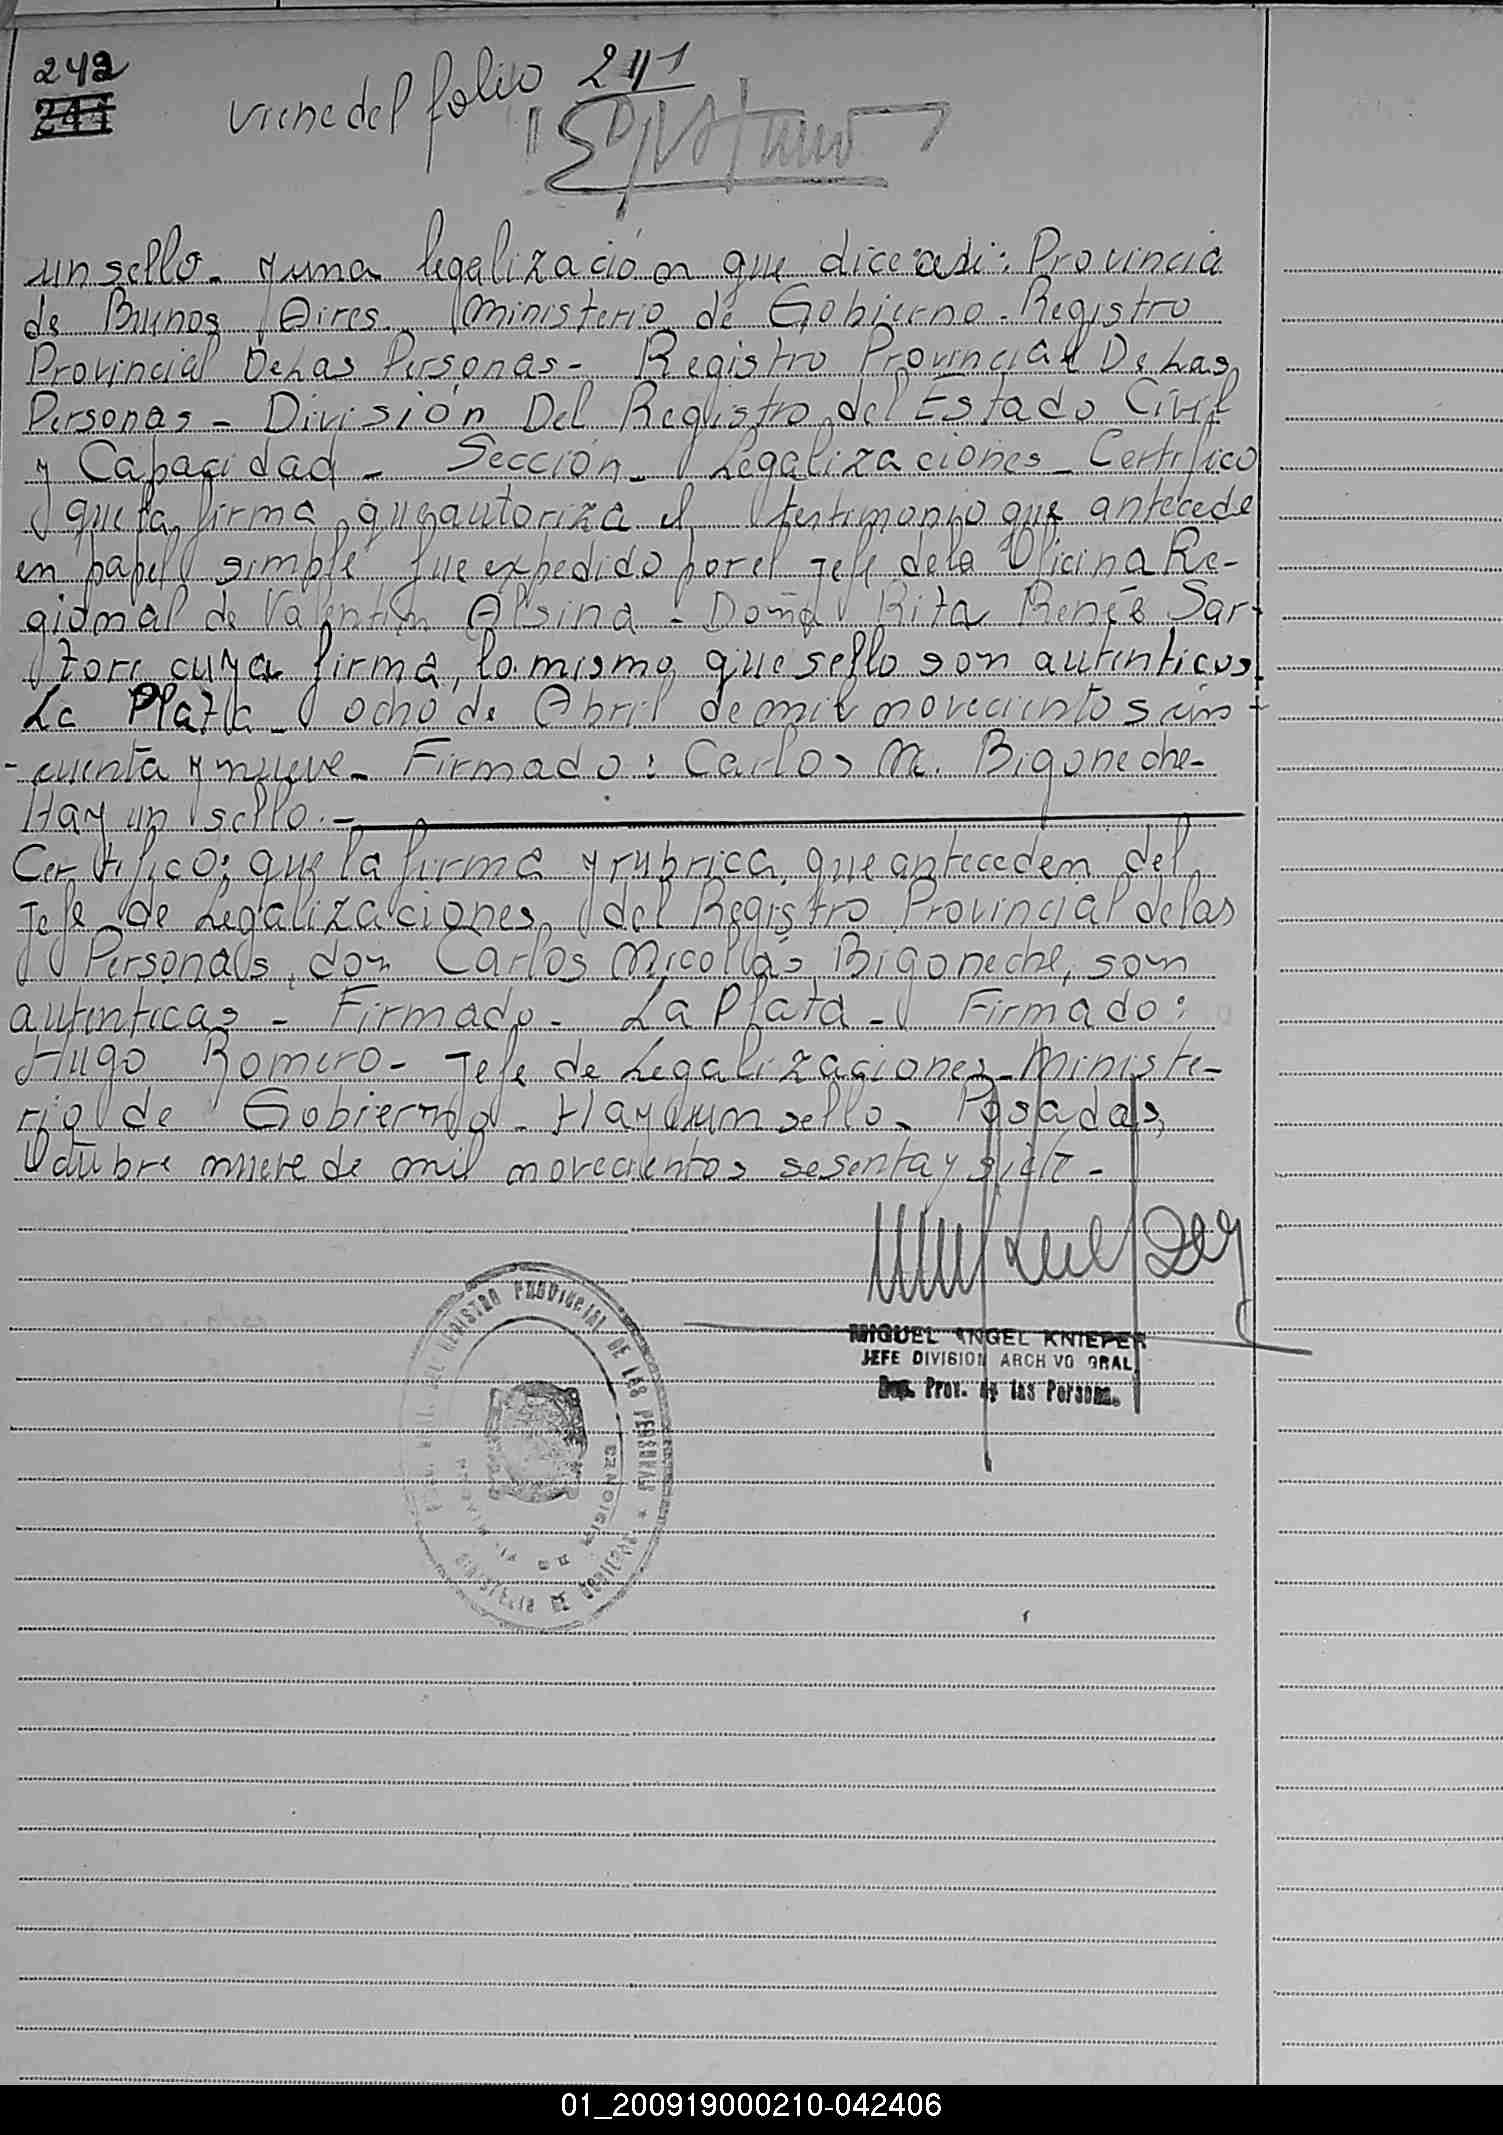 242
241
Viene del folio 241
un sello. y una legalización que dice asi: Provincia
de Buenos Aires. Ministerio de Gobierno. Registro
Provincial De Las Personas - Registro Provincial De Las
Personas - División Del Registro del Estado Civil
y Capacidad - Sección - Legalizaciones - Certifico
que la firma que autoriza el testimonio que antecede
en papel simple fue expedido por el Jefe de la Oficina Re-
gional de Valentín Alsina - Doña Rita Renée Sar-
tori cuya firma, lo mismo que sello son autenticos
La Plata - ocho de Abril de mil novecientos cin
- cuenta y nueve - Firmado: Carlos N. Bigoneche-
Hay un sello.-
Certifico: que la firma y rubrica, que anteceden del
Jefe de Legalizaciones del Registro Provincial de las
Personas, don Carlos Nicolás Bigoneche, son
autenticas - Firmado - La Plata - Firmado:
Hugo Romero - Jefe de Legalizaciones - Ministe-
rio de Gobierno - Hay un sello. Posadas,
Octubre nueve de mil novecientos sesenta y siete -
MIGUEL ANGEL KNIEPER
JEFE DIVISION ARCHIVO GRAL
Prov. de las Persona.
DEL REGISTRO PROVINCIAL DE LAS PERSONAS
MISIONES
01_200919000210-042406